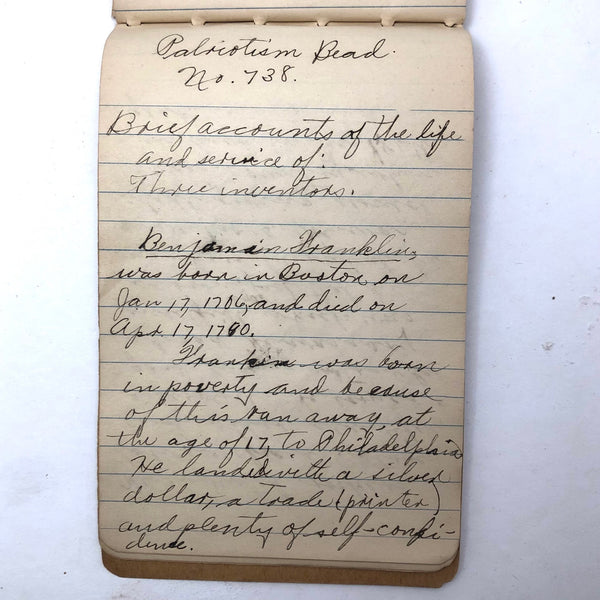 Patriotism Bead.
No. 738.
Brief accounts of the life
and service of:
Three inventors.
Benjamin Franklin,
was born in Boston on
Jan 17, 1706, and died on
Apr. 17, 1790.
Franklin was born
in poverty and because
of this ran away, at
the age of 17, to Philadelphia
He landed with a silver
dollar, a trade (printer)
and plenty of self-confi-
dence.